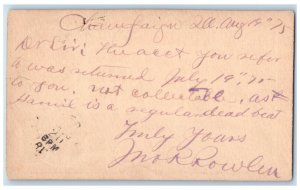 Champaign Ill. Aug 19" 75
Dr Sir: The acct you refer
to was returned July 19" 75
to you, not collectable, as
Hamil is a regular dead beat
Truly Yours
6 PM